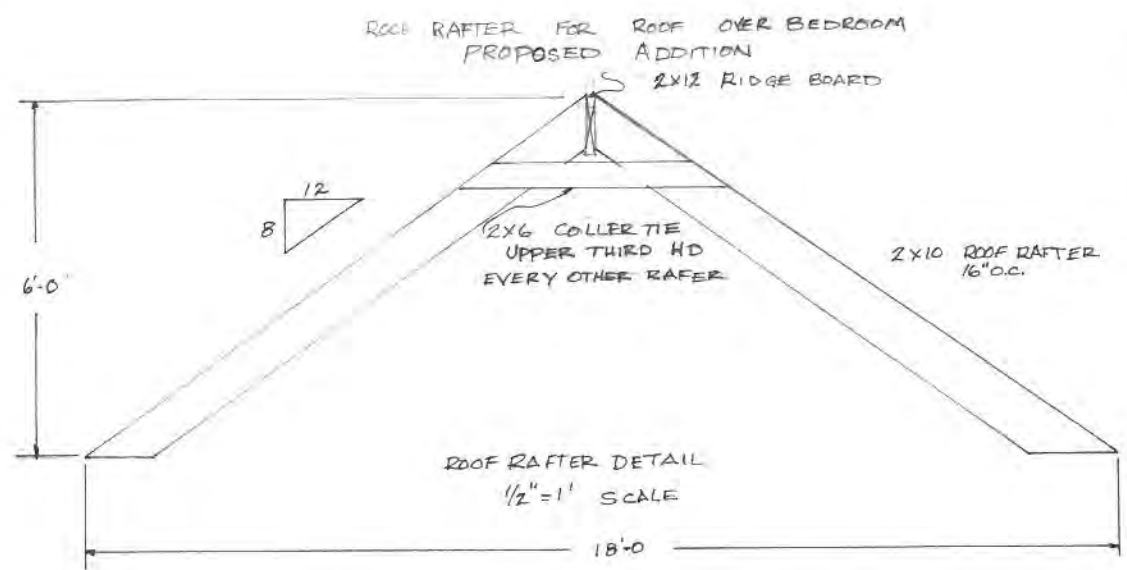 ROOF RAFTER FOR ROOF OVER BEDROOM
PROPOSED ADDITION
2X12 RIDGE BOARD
12
8
2X6 COLLER TIE
UPPER THIRD HD
EVERY OTHER RAFER
2X10 ROOF RAFTER
16" O.C.
6'-0"
ROOF RAFTER DETAIL
1/2"=1' SCALE
18'-0